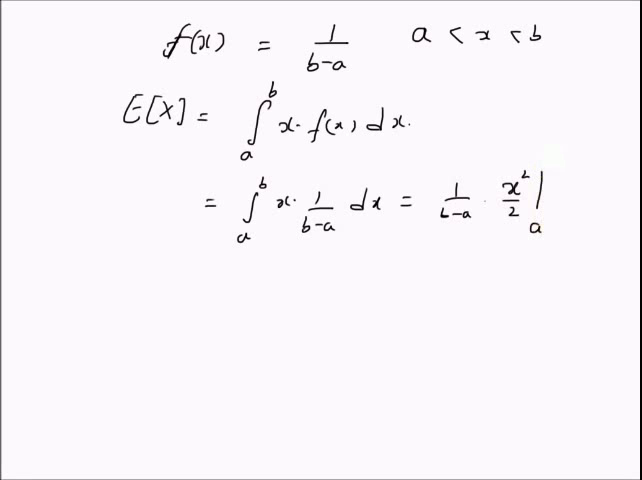 f(x) = 1/(b-a) a < x < b
E[X] = ∫_a^b x. f(x) dx.
= ∫_a^b x. 1/(b-a) dx = 1/(b-a) . x²/2 |_a